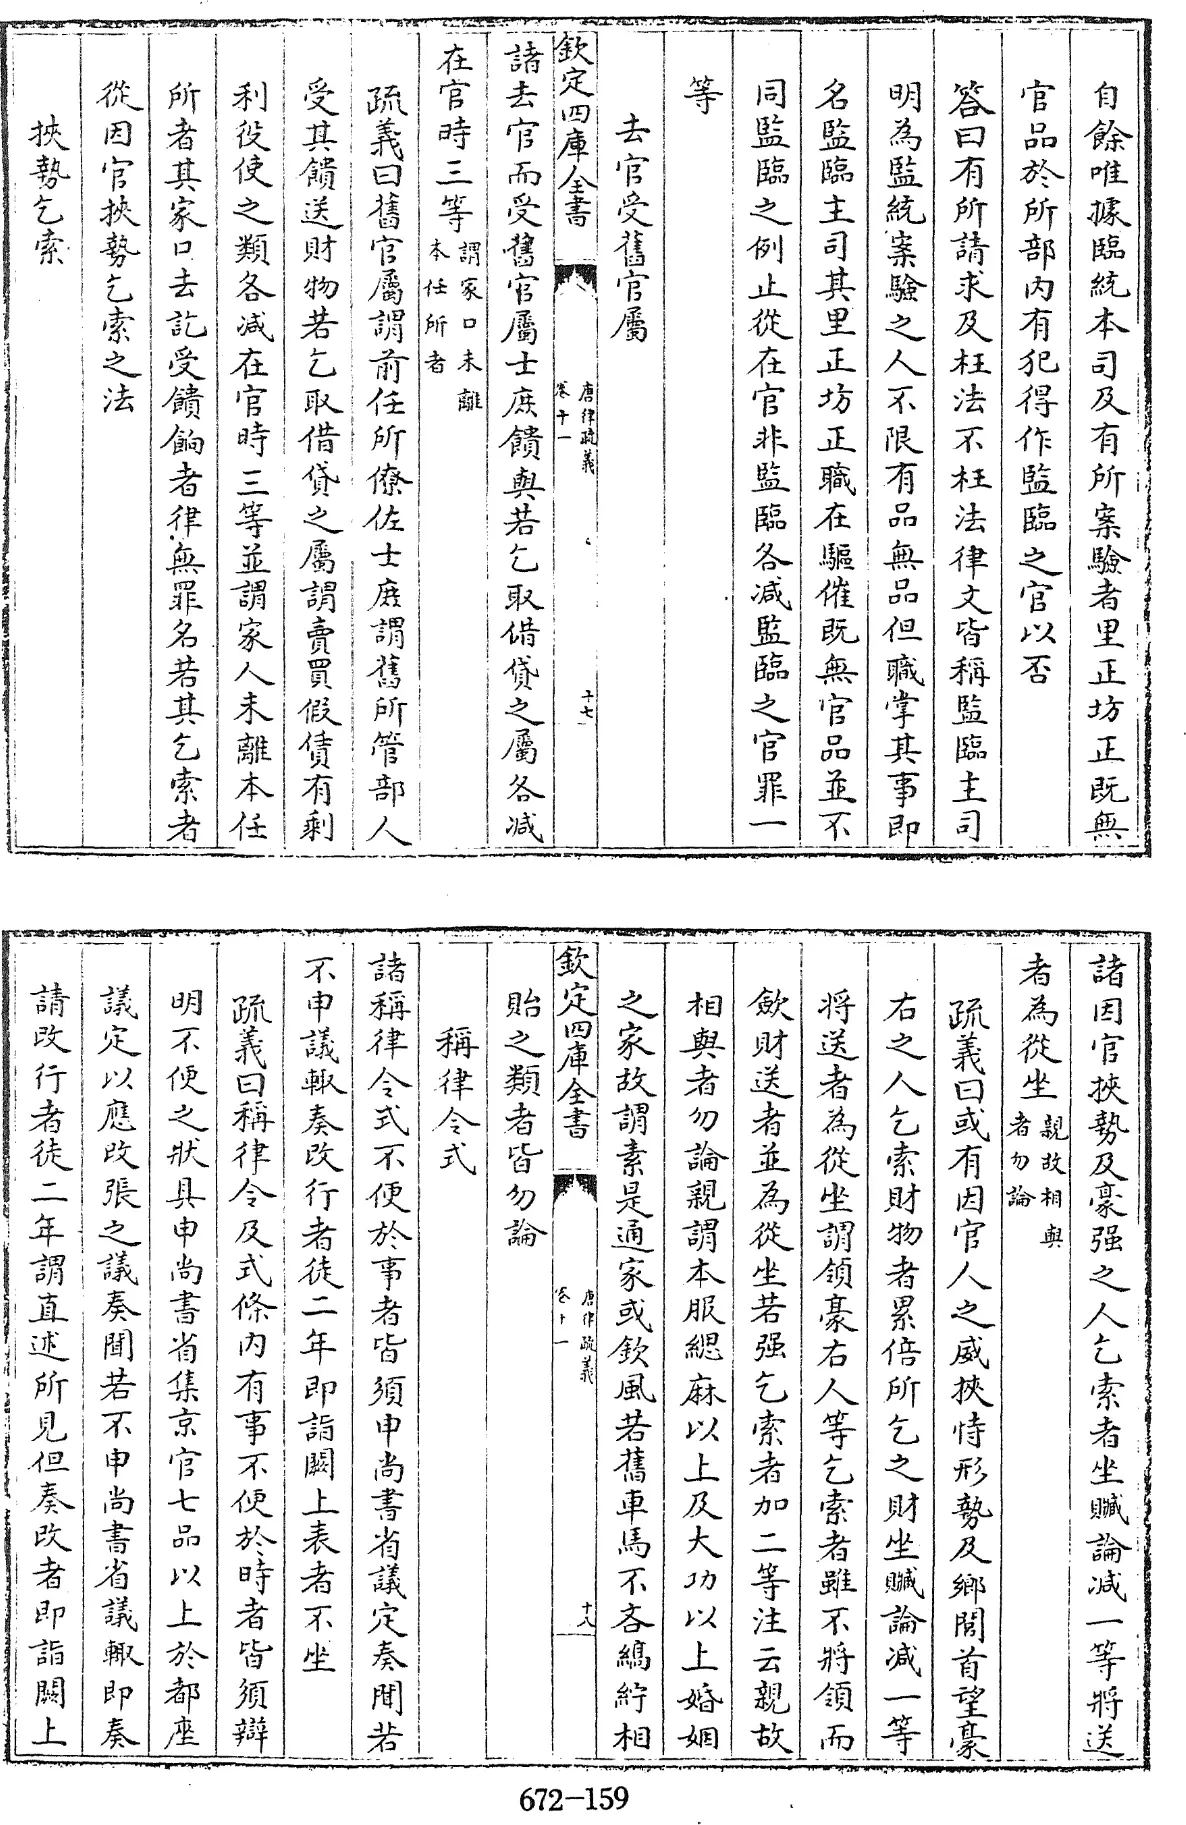 自餘唯據臨統本司及有所案驗者里正坊正既無
官品於所部内有犯得作監臨之官以否
答曰有所請求及枉法不枉法律文皆稱監臨主司
明為監統案驗之人不限有品無品但職掌其事即
名監臨主司其里正坊正職在驅催既無官品並不
同監臨之例止從在官非監臨各减監臨之官罪一
等
去官受舊官屬
欽定四庫全書
唐律疏義
卷十一
十七
諸去官而受舊官屬士庶饋與若乞取借貸之屬各减
在官時三等謂家口未離
本任所者
疏義曰舊官屬謂前任所僚佐士庶謂舊所管部人
受其饋送財物若乞取借貸之屬謂賣買假賃有剩
利役使之類各减在官時三等並謂家人未離本任
所者其家口去訖受饋餉者律無罪名若其乞索者
從因官挾勢乞索之法
挾勢乞索
諸因官挾勢及豪强之人乞索者坐贓論减一等將送
者為從坐親故相與
者勿論
疏義曰或有因官人之威挾恃形勢及鄉閭首望豪
右之人乞索財物者累倍所乞之財坐贓論减一等
將送者為從坐謂領豪右人等乞索者雖不將領而
歛財送者並為從坐若强乞索者加二等注云親故
相與者勿論親謂本服緦麻以上及大功以上婚姻
之家故謂素是通家或欽風若舊車馬不吝縞紵相
欽定四庫全書
唐律疏義
卷十一
十八
貽之類者皆勿論
稱律令式
諸稱律令式不便於事者皆須申尚書省議定奏聞若
不申議輙奏改行者徒二年即詣闕上表者不坐
疏義曰稱律令及式條内有事不便於時者皆須辯
明不便之狀具申尚書省集京官七品以上於都座
議定以應改張之議奏聞若不申尚書省議輙即奏
請改行者徒二年謂直述所見但奏改者即詣闕上
672-159